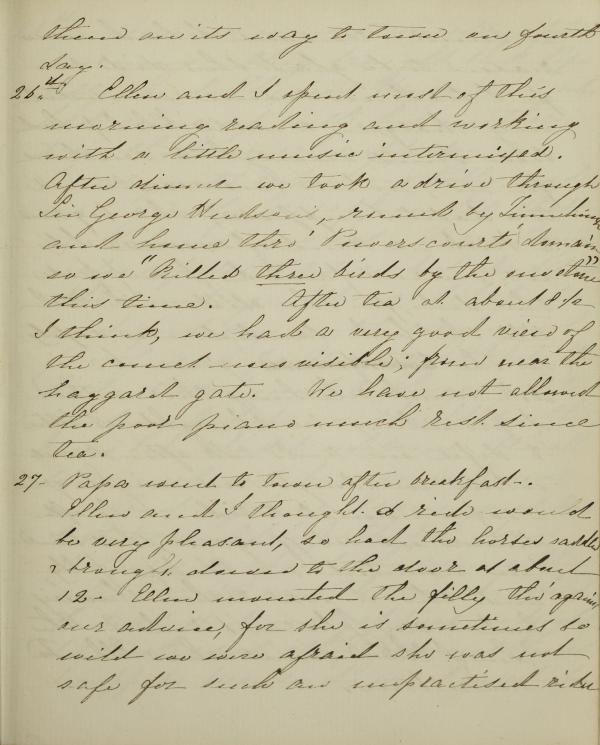 them on its way to town on fourth
day.
26th. Ellen and I spent most of this
morning reading and working
with a little music intermixed.
After dinner we took a drive through
Sir George Hudson's, round by
and home thro' Powerscourt's domain
so we "Killed three birds by the one stone"
this time. After tea at about 8 1/2
I think, we had a very good view of
the comet now visible; from near the
haggard gate. We have not allowed
the poor piano much rest since
tea.
27- Papa went to town after breakfast-.
Ellen and I thought a ride would
be very pleasant, so had the horses saddled
& brought down to the door at about
12- Ellen mounted the filly tho' against
our advice, for she is sometimes so
wild we were afraid she was not
safe for such an unpractised rider